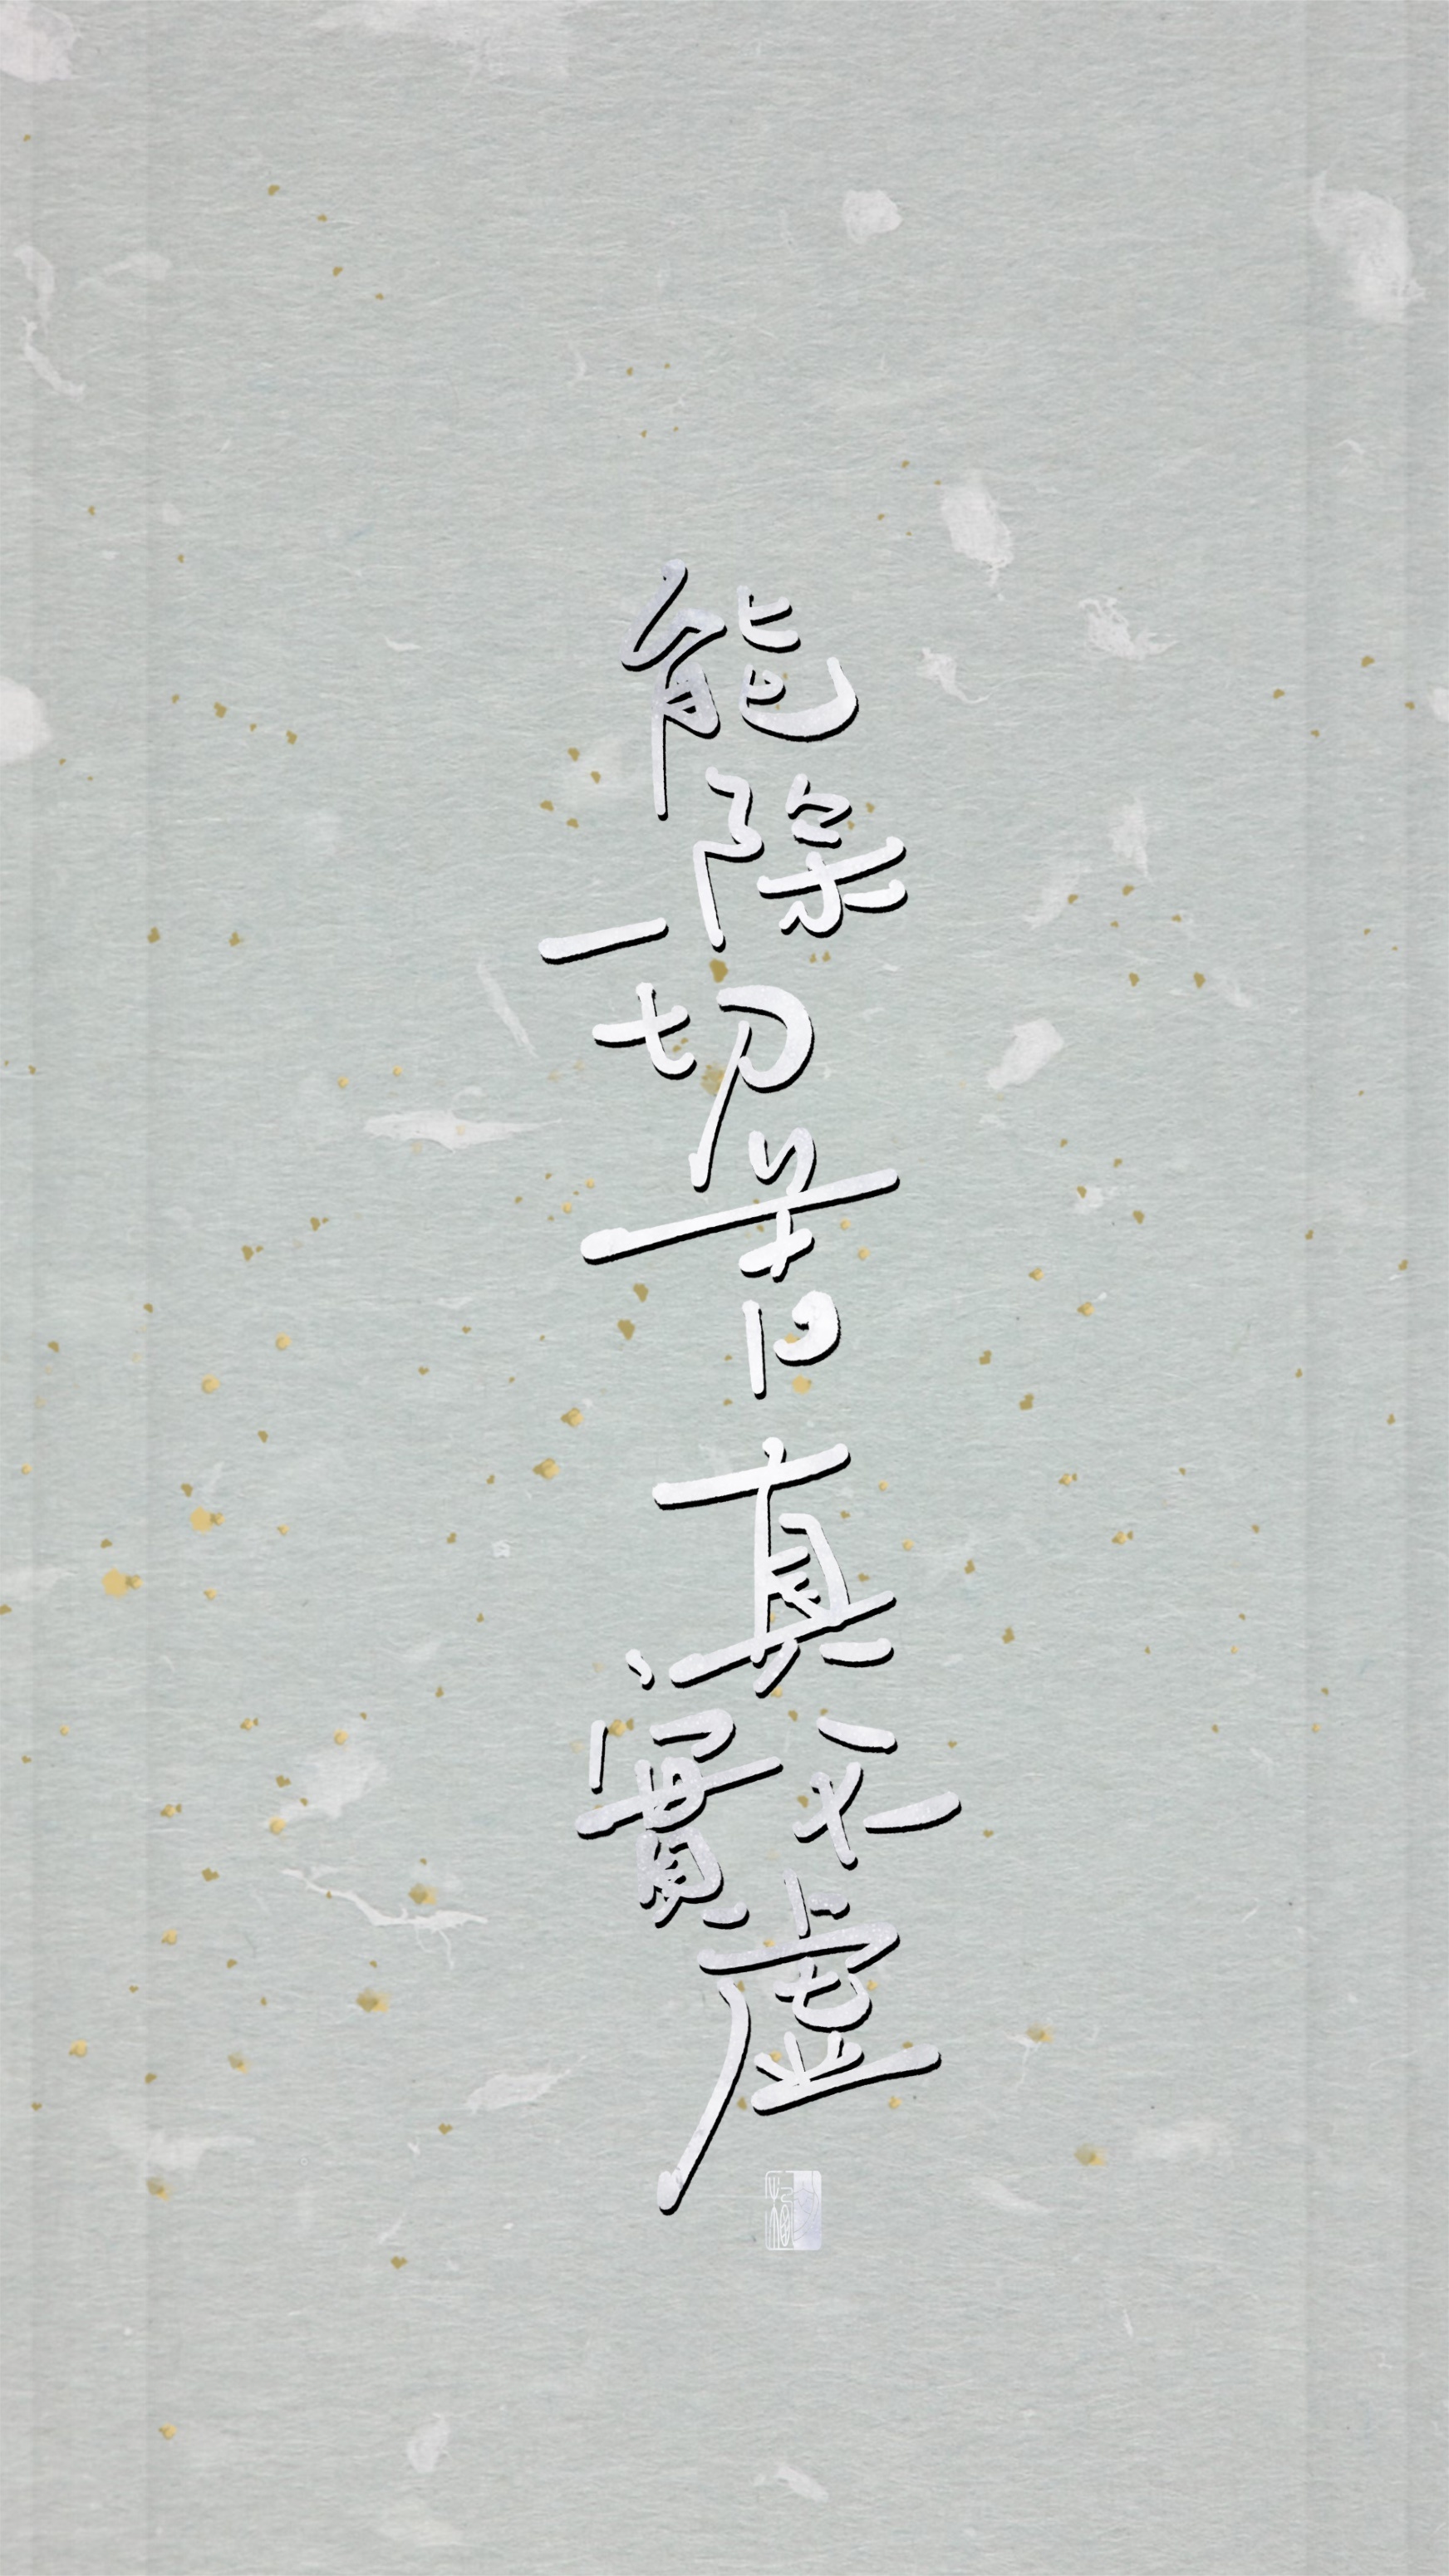 能除一切苦真實不虛